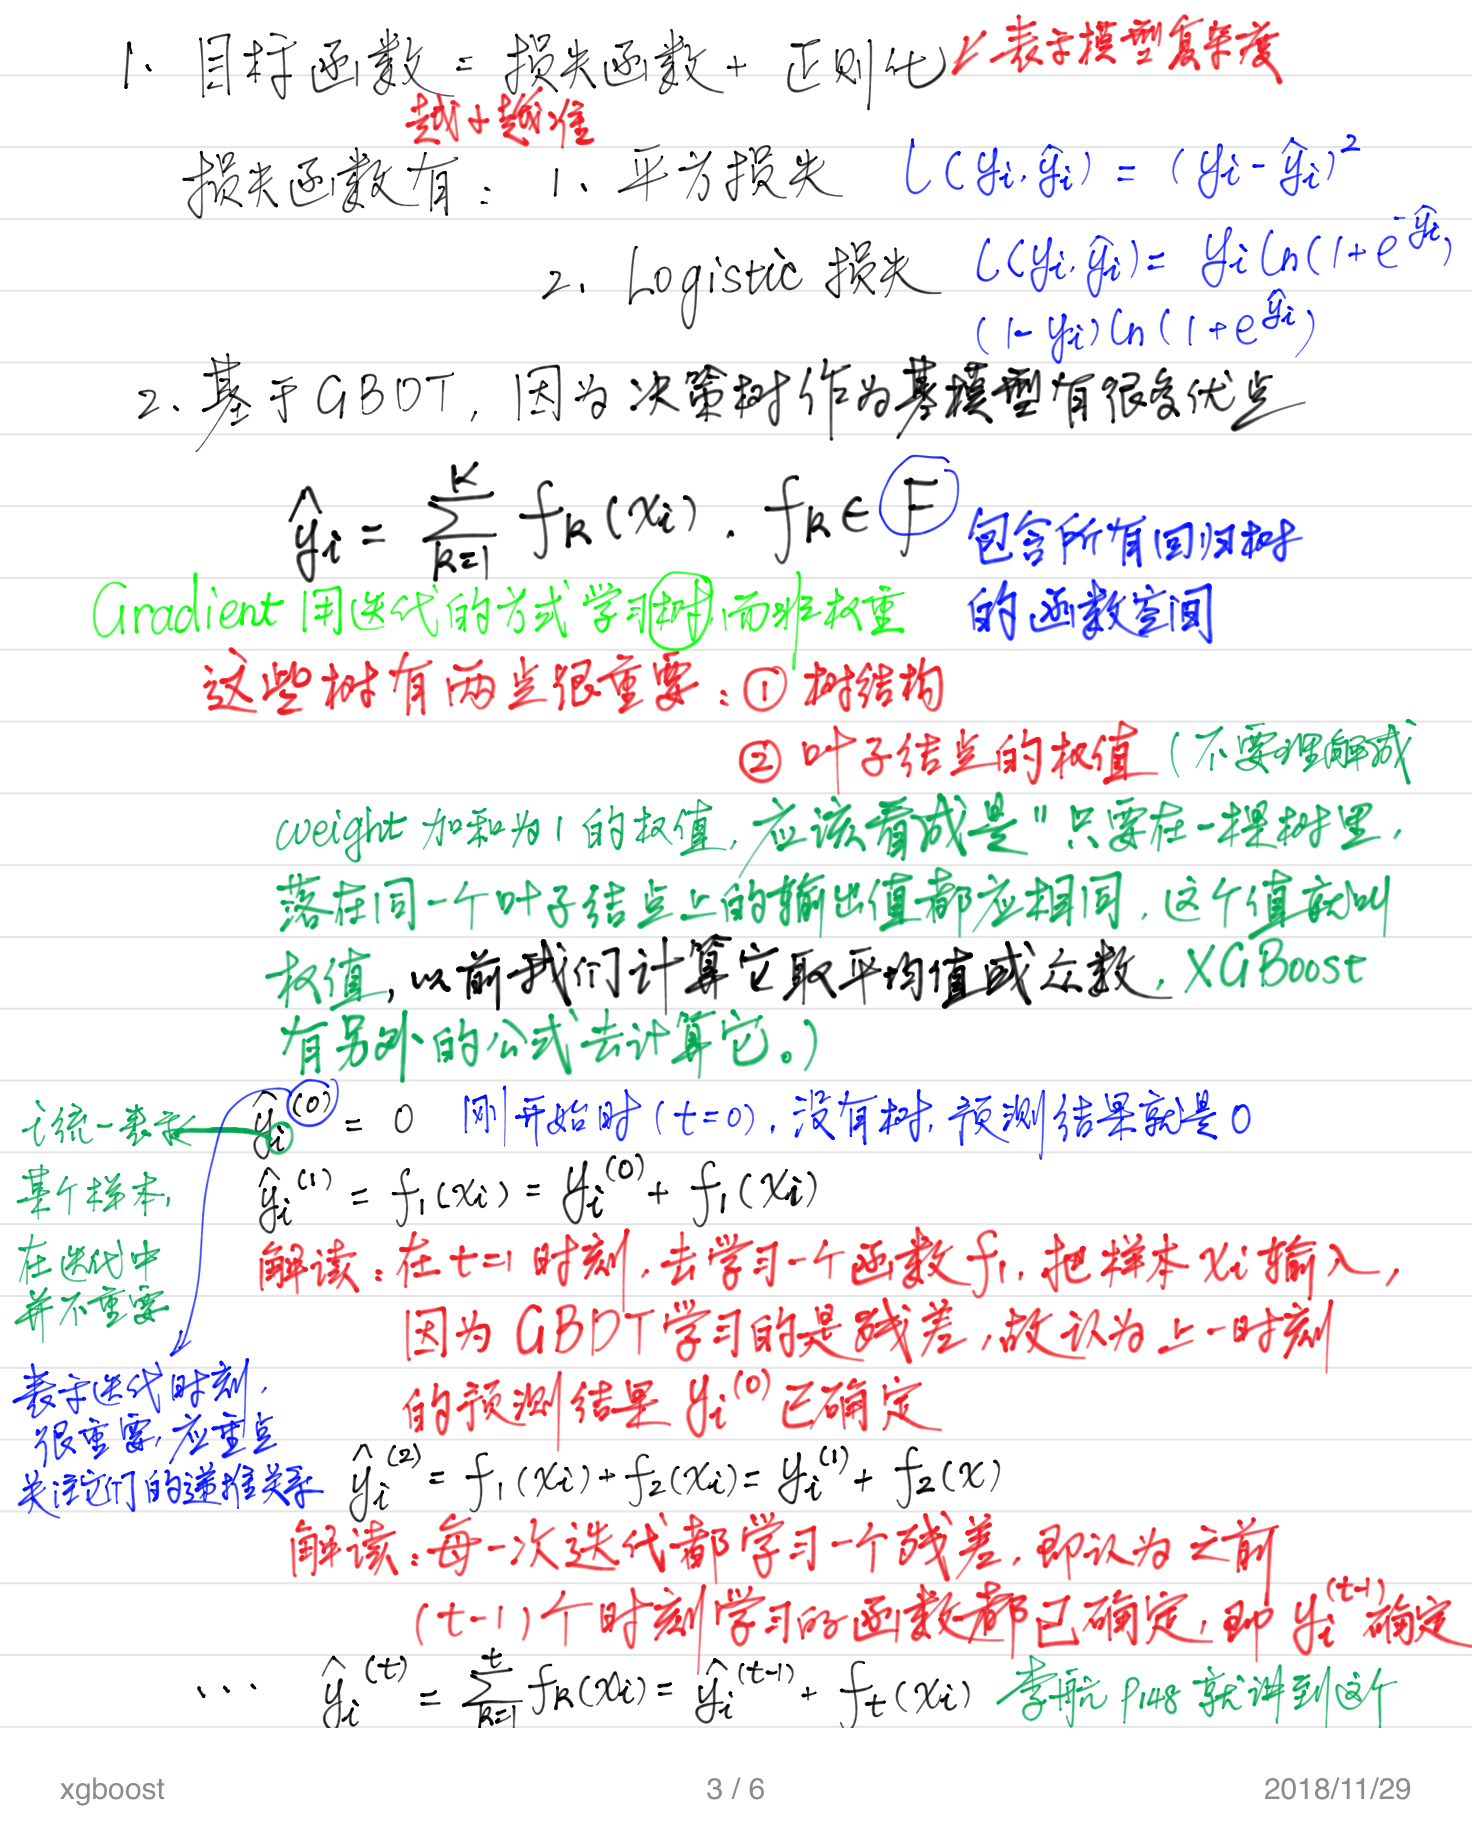 1、目标函数 = 损失函数 + 正则化 ↙表示模型复杂度
越小越准
损失函数有：1、平方损失 l(yi, ŷi) = (yi - ŷi)²
2、Logistic 损失 l(yi, ŷi) = yi ln(1+e^-ŷi)
(1-yi) ln(1+e^ŷi)
2、基于GBDT, 因为决策树作为基模型有很多优点
ŷi = Σ_{k=1}^{K} fk(xi), fk ∈ F 包含所有回归树
的函数空间
Gradient 用迭代的方式学习树,而非权重
这些树有两点很重要：① 树结构
② 叶子结点的权值 (不要理解成
weight 加和为1的权值, 应该看成是"只要在一棵树里,
落在同一个叶子结点上的输出值都应相同, 这个值就叫
权值, 以前我们计算它取平均值或众数, XGBoost
有另外的公式去计算它。)
ŷi^(0) = 0 刚开始时 (t=0), 没有树, 预测结果就是0
i统一表示
某个样本,
在迭代中
并不重要
ŷi^(1) = f1(xi) = yi^(0) + f1(xi)
解读：在t=1时刻, 去学习一个函数f1, 把样本xi输入,
因为GBDT学习的是残差, 故认为上一时刻
的预测结果 yi^(0) 已确定
表示迭代时刻,
很重要, 应重点
关注它们的递推关系
ŷi^(2) = f1(xi) + f2(xi) = yi^(1) + f2(x)
解读：每一次迭代都学习一个残差, 即认为之前
(t-1)个时刻学习的函数都已确定, 即 yi^(t-1) 确定
... ŷi^(t) = Σ_{k=1}^{t} fk(xi) = ŷi^(t-1) + ft(xi) 李航 P148 就讲到这个
xgboost 3 / 6 2018/11/29